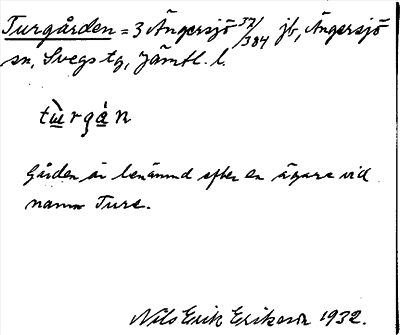 Turgården = 3 Ängersjö 32/384 jb, Ängersjö
sn, Svegs tg, Jämtl. l.
tùrgán
Gården är benämnd efter en ägare vid
namn Ture.
Nils Erik Erikson 1932.